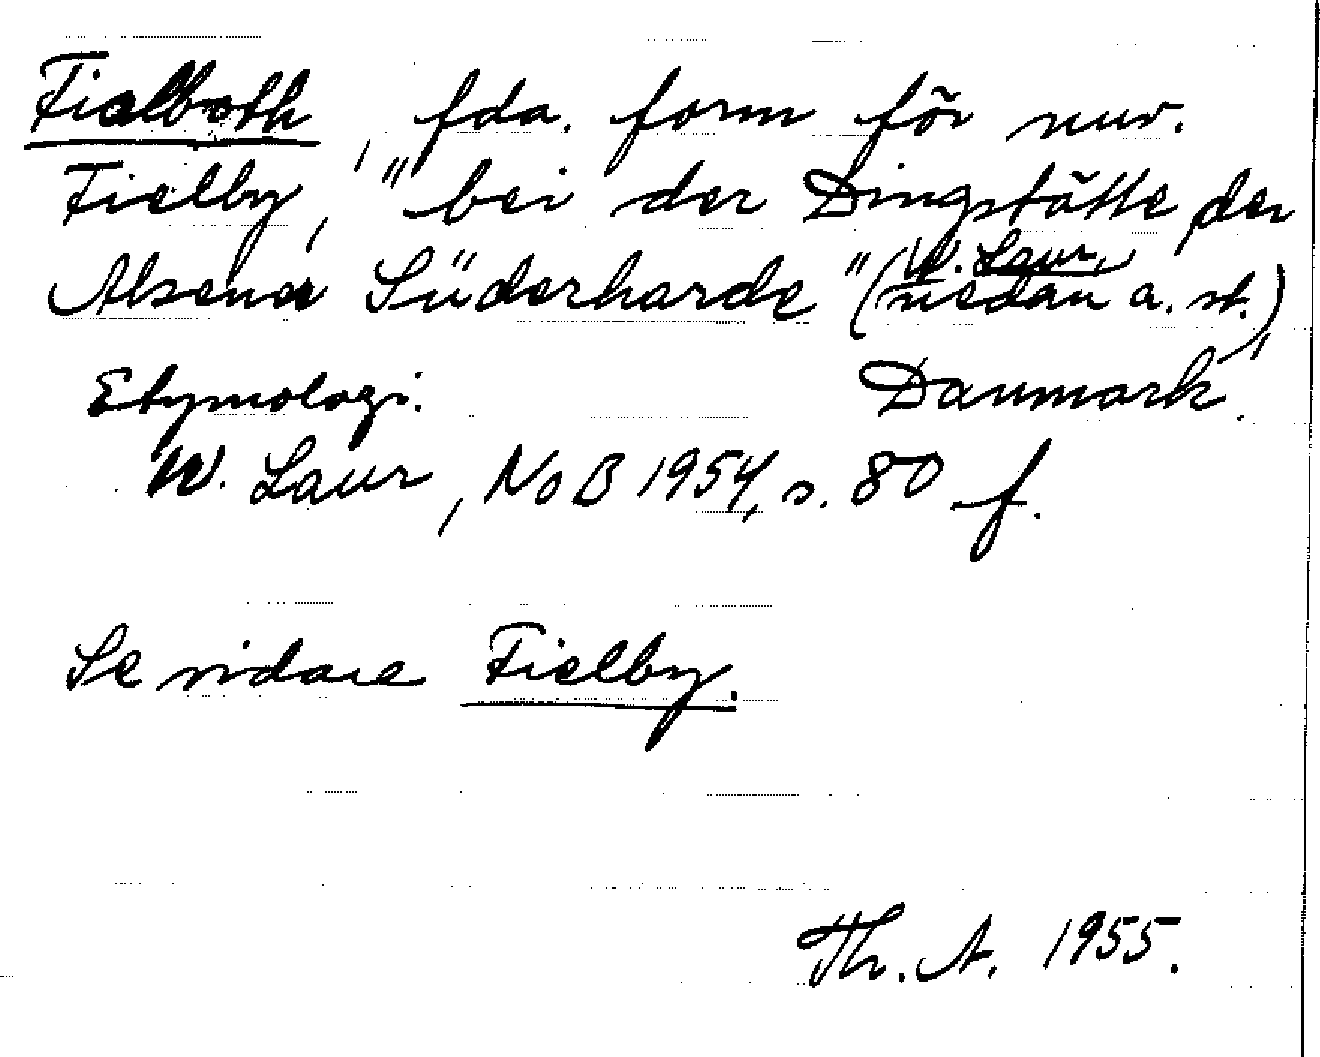 Fielboth, fda. form för nuv.
Fielby, "bei der Dingstätte der
Alsener Süderharde" (W. Laur, nedan a. st.)
Etymologi. Danmark.
W. Laur, NoB 1954, s. 80 f.
Se vidare Fielby.
Th. A. 1955.